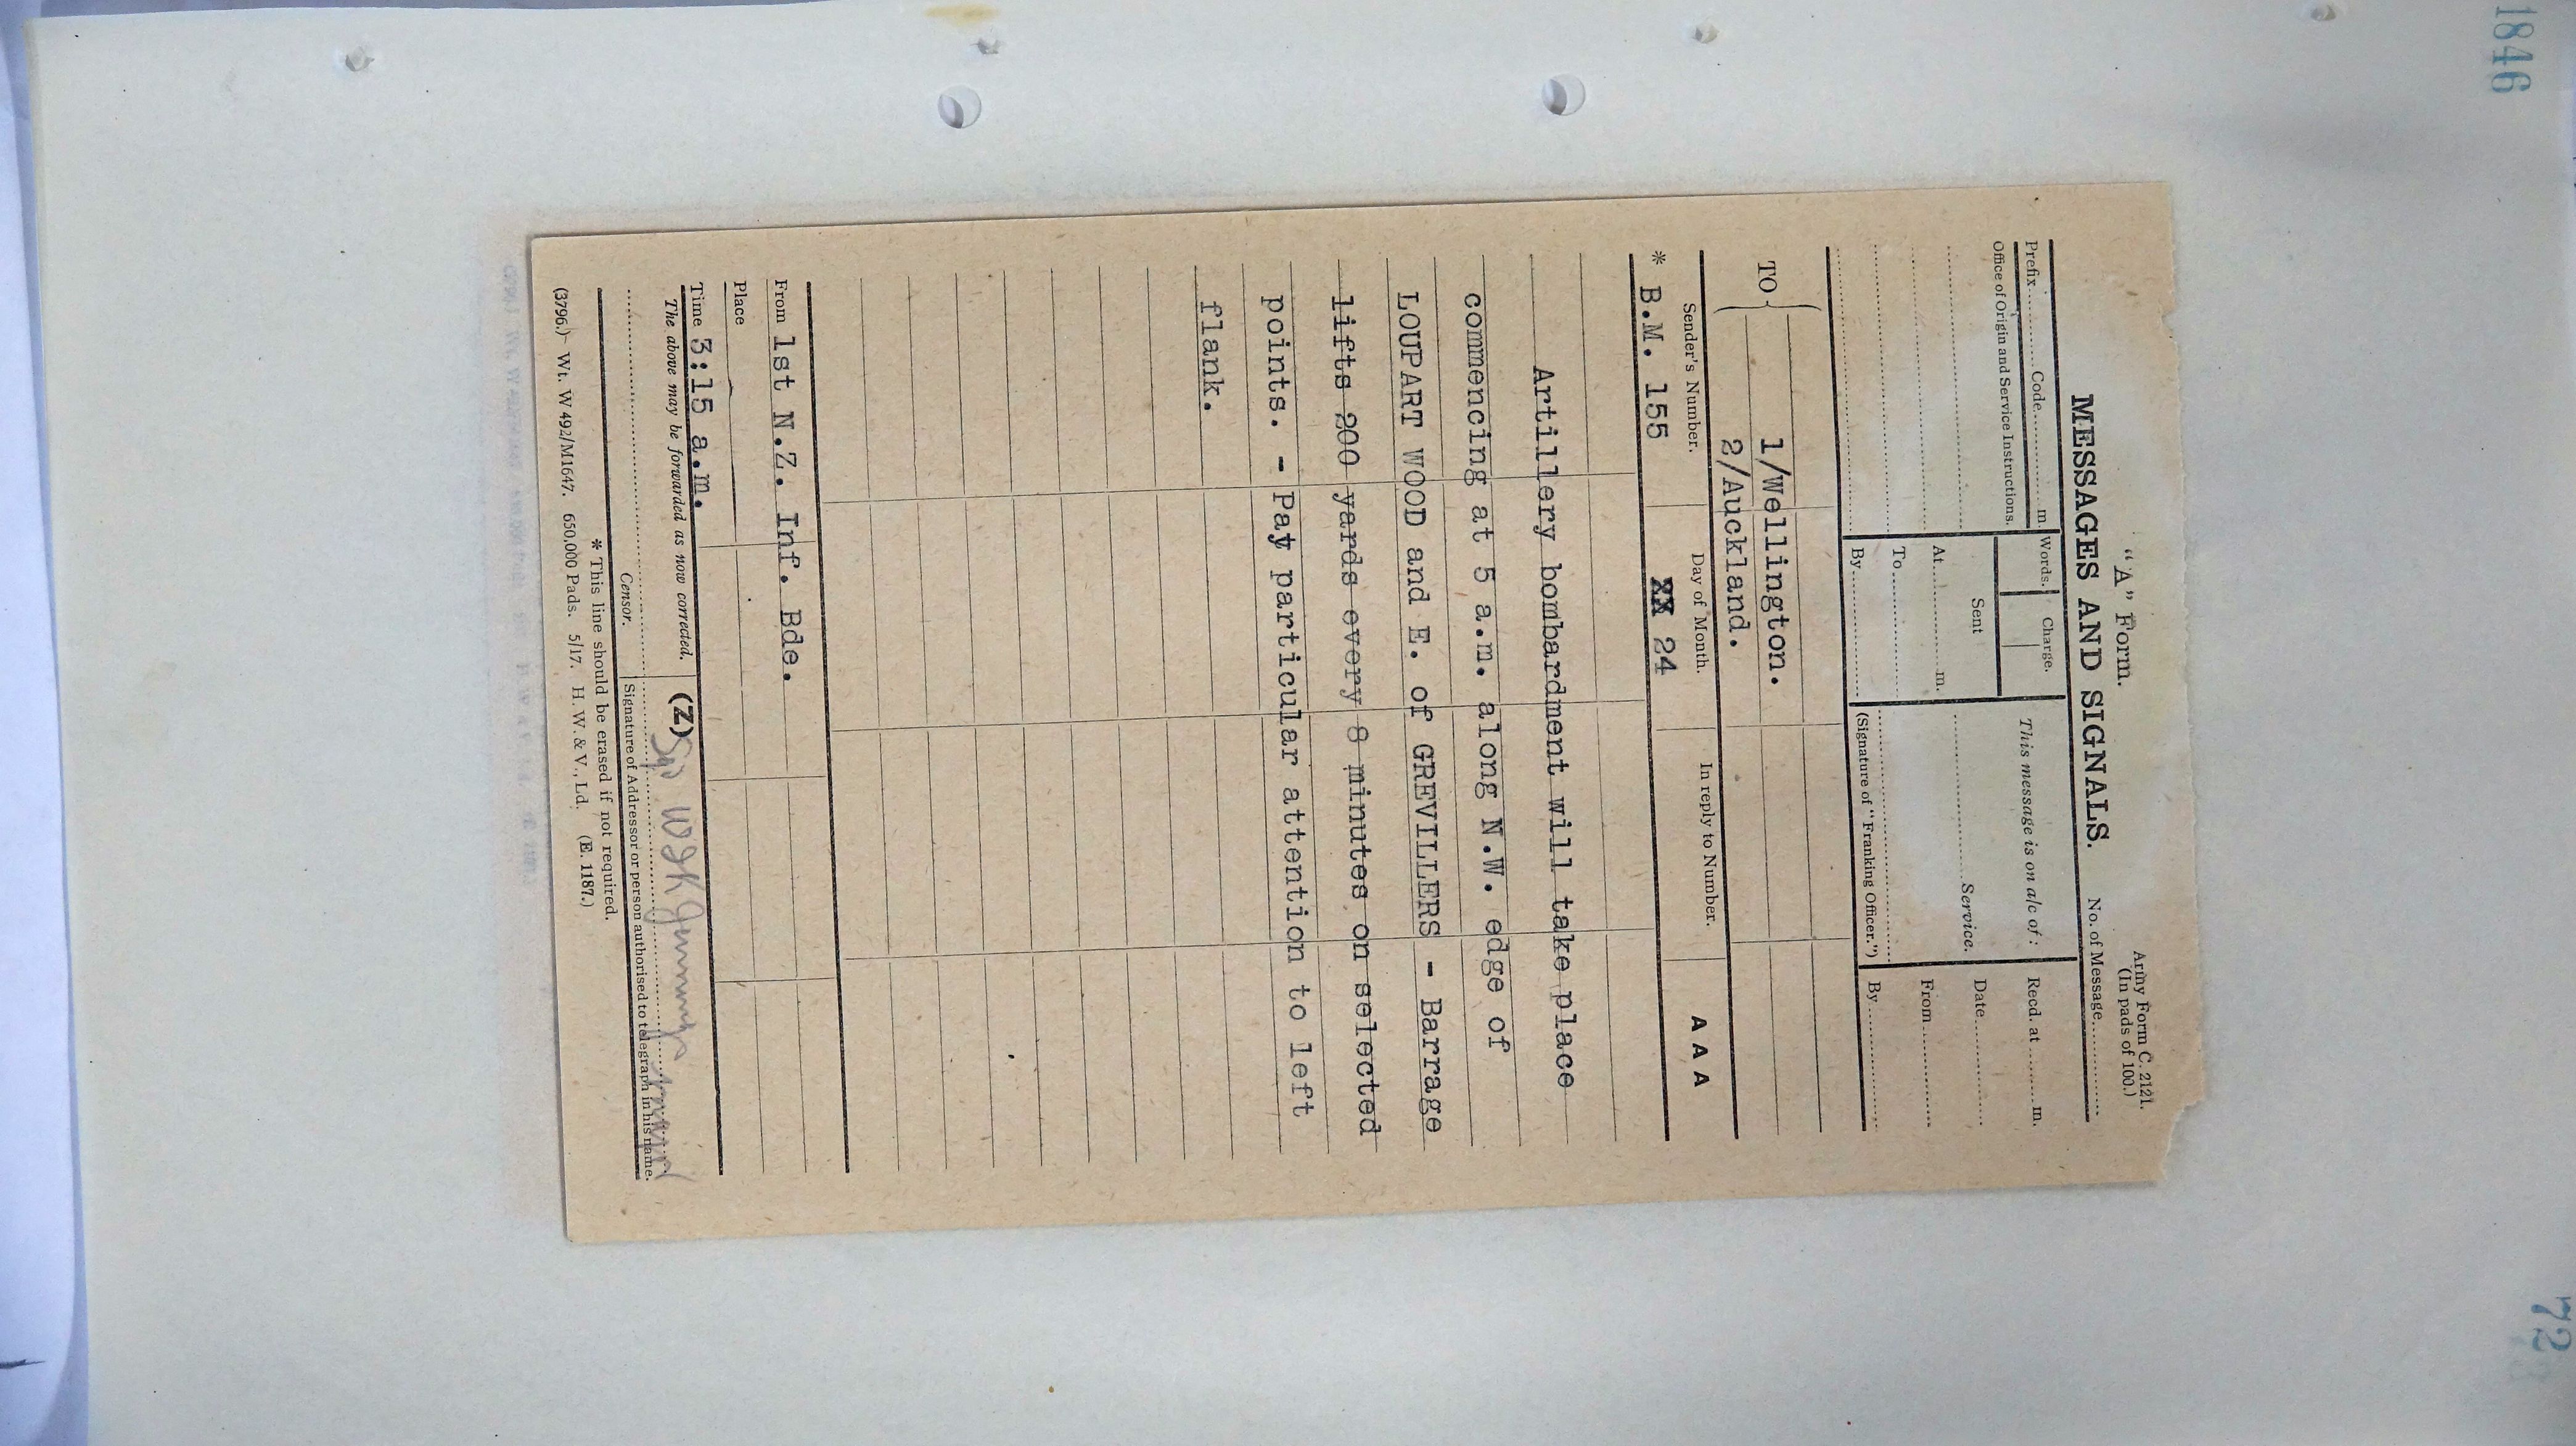 1846
72
"A" Form.
Army Form C. 2121.
(In pads of 100.)
MESSAGES AND SIGNALS.
No. of Message..........
Prefix.......... Code.......... m.
Words.
Charge.
This message is on a/c of :
Recd. at ........ m.
Office of Origin and Service Instructions.
Sent
At.......... m.
.......... Service.
Date..........
To..........
From..........
By..........
(Signature of "Franking Officer.")
By..........
TO
1/Wellington.
2/Auckland.
Sender's Number.
Day of Month.
In reply to Number.
A A A
* B.M. 155
24
Artillery bombardment will take place
commencing at 5 a.m. along N.W. edge of
LOUPART WOOD and E. of GREVILLERS - Barrage
lifts 200 yards every 8 minutes on selected
points. - Pay particular attention to left
flank.
From 1st N.Z. Inf. Bde.
Place
Time 3:15 a.m.
The above may be forwarded as now corrected.
(Z)
Censor.
Signature of Addressor or person authorised to telegraph in his name.
* This line should be erased if not required.
(3796.) Wt. W 492/M1647. 650,000 Pads. 5/17. H. W. & V., Ld. (E. 1187.)